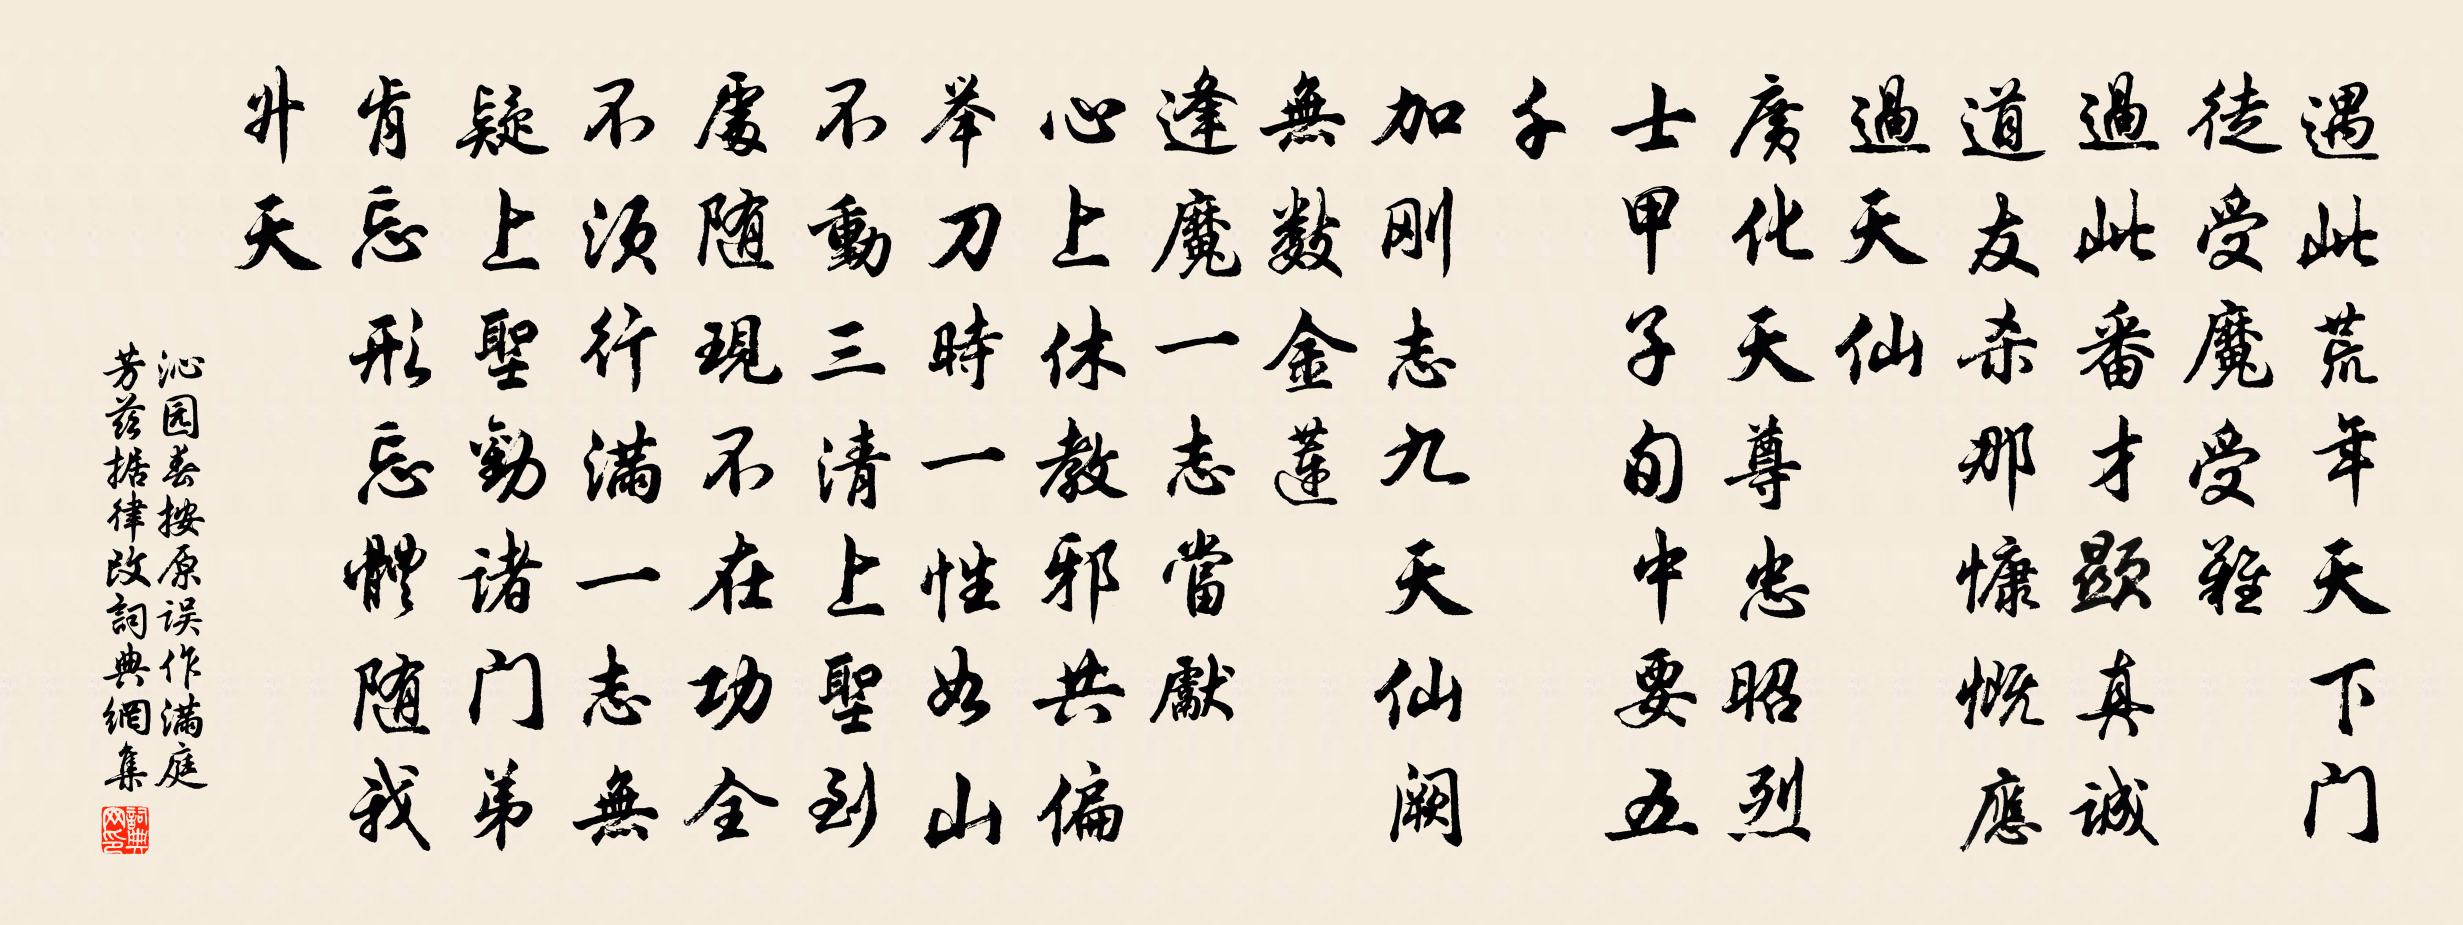 遇此荒年天下门
徒受魔受难
過此番才顕真诚
道友杀那慷慨應
過天仙
广化天尊忠昭烈
士甲子旬中要五
千
加刚志九天仙阙
無数金莲
逢魔一志當獻
心上休教邪共偏
举刀時一性如山
不動三清上聖到
處随現不在功全
不须行满一志無
疑上聖勸诸门弟
肯忘形忘體随我
升天
沁园春按原误作满庭
芳兹据律改詞典網集
詞典